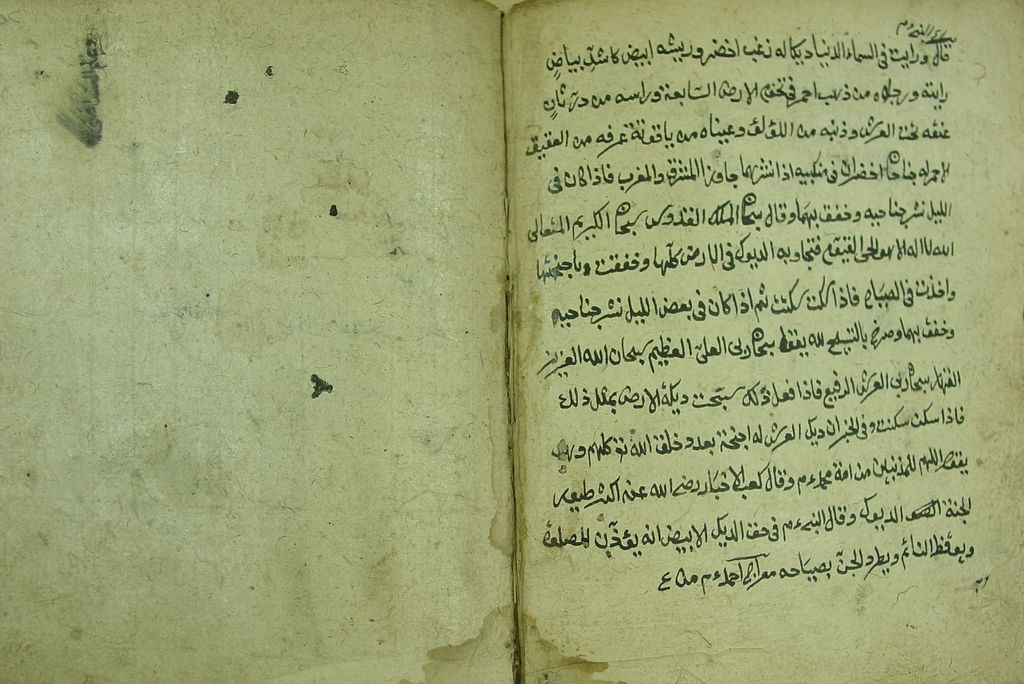 قال ورايت فى السماء الدنيا ديكا له زغب اخضر وريشه ابيض كاشد بياض
رايته ورجلاه من ذهب احمر فى تخوم الارض السابعة وراسه من درة ثان
عنقه تحت العرش وذنبه من اللؤلؤ وعيناه من ياقوتة عرفه من العقيق
الاحمر له جناحان اخضران فى منكبيه اذا نشرهما جاوز المشرق والمغرب فاذا كان فى
الليل نشر جناحيه وخفق بهما وقال سبحان الملك القدوس سبحان الكريم المتعالى
الله لا اله الا هو الحى القيوم فتجاوبه الديوك فى الارض كلها وخفقت باجنحتها
واخذت فى الصياح فاذا سكت سكتت ثم اذا كان فى بعض الليل نشر جناحيه
وخفق بهما وصرخ بالتسبيح لله يقول سبحان ربى العلى العظيم سبحان الله العزيز
القهار سبحان ربى العرش الرفيع فاذا فعل ذلك سبحت ديكة الارض بمثل ذلك
فاذا سكت سكنت وفى الخبر ان ديك العرش له اجنحة بعدد خلق الله تو كلهم
يقول اللهم للمذنبين من امة محمد م وقال كعب الاخبار رضى الله عنه اكثر طيور
الجنة الديوك وقال النبى م فى حق الديك الابيض انه يؤذن للصلوة
ويوقظ النائم ويطرد الجن بصياحه